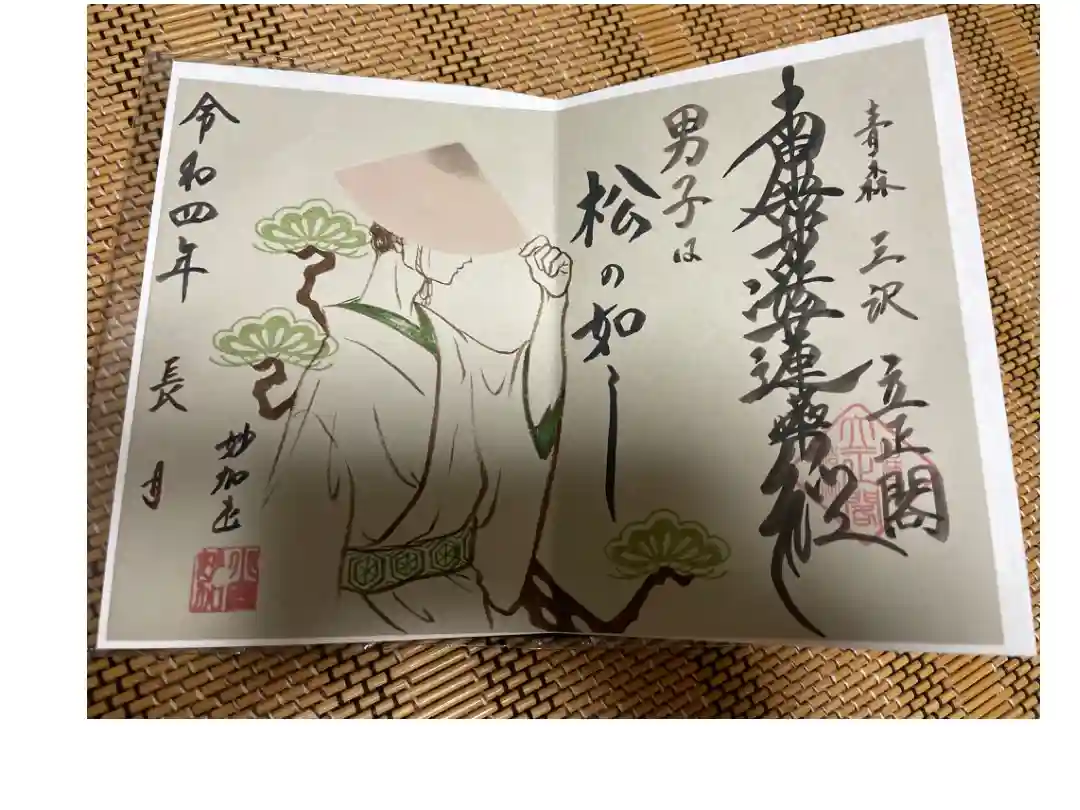 青森 三沢 立正閣
南無妙法蓮華経
男子は
松の如し
令和四年 長月